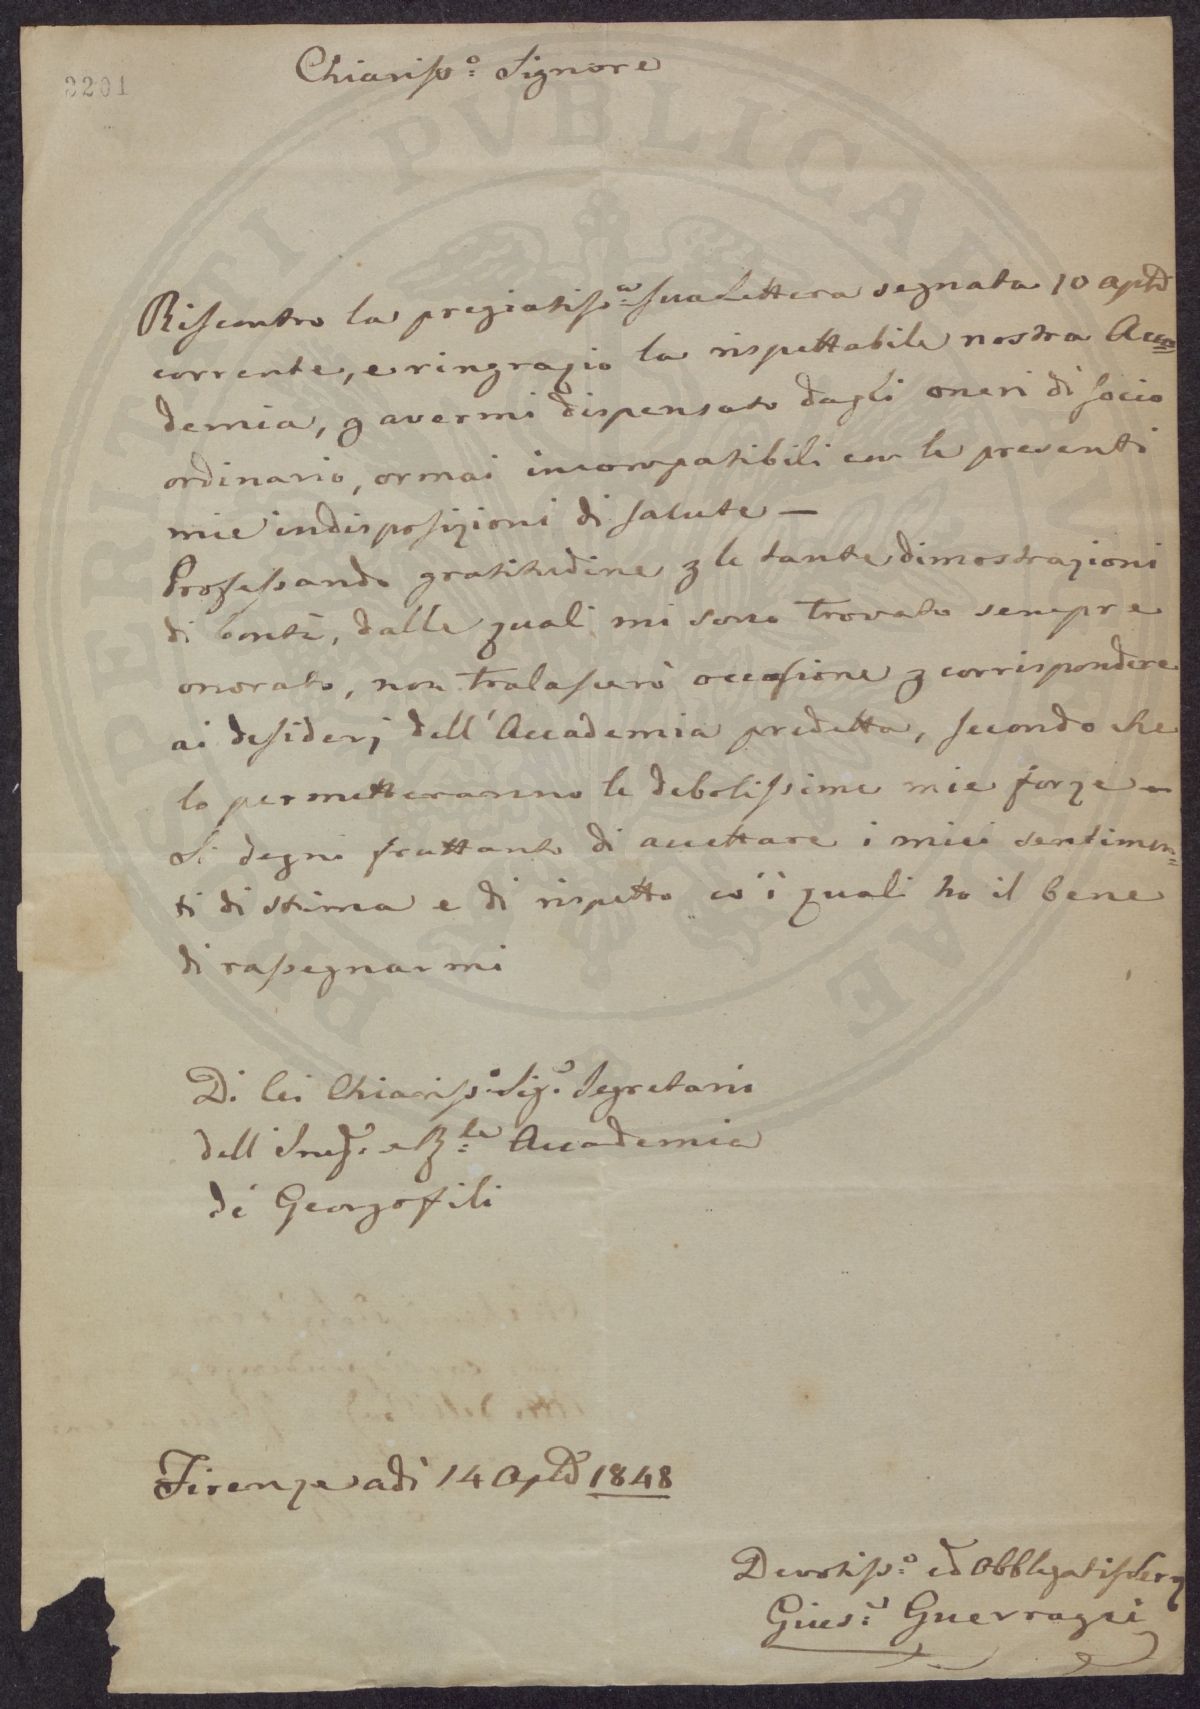 2201
Chiariss.º Signore
Riscontro la pregiatiss.ª sua Lettera segnata 10 aple
corrente, e ringrazio la rispettabile nostra Acca=
demia, p avermi dispensato dagli oneri di socio
ordinario, ormai incompatibili con le presenti
mie indisposizioni di salute —
Professando gratitudine p le tante dimostrazioni
di bontà, dalle quali mi sono trovato sempre
onorato, non tralascerò occasione p corrispondere
ai desiderj dell'Accademia predetta, secondo che
lo permetteranno le debolissime mie forze —
Si degni frattanto di accettare i miei sentimen=
ti di stima e di rispetto co' i quali ho il bene
di rassegnarmi
Di lei Chiariss.º Sig.e Segretario
dell' e R.le Accademia
dé Georgofili
Firenze adì 14 Aple 1848
Devotiss.º ed Obbligatiss Serv
Gius.e
PUBLICAE